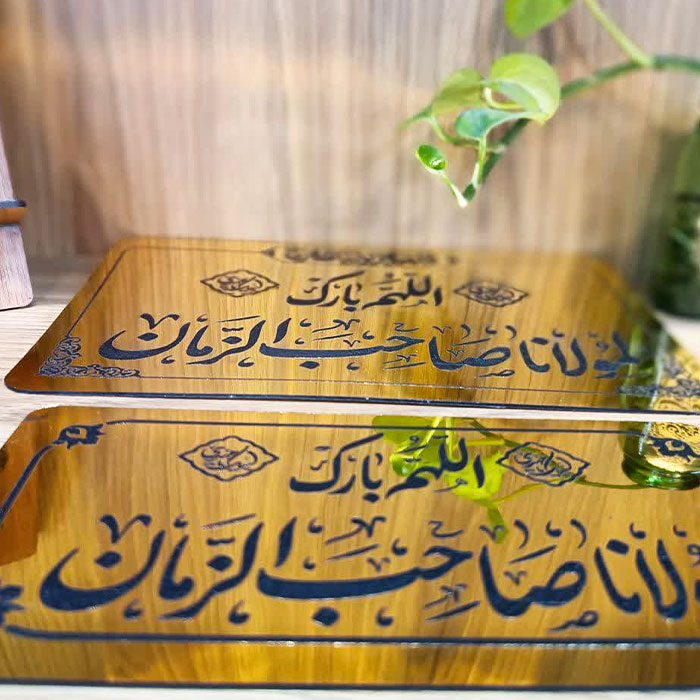 اللهم بارك
لمولانا صاحب الزمان
اللهم بارك
لانا صاحب الزمان